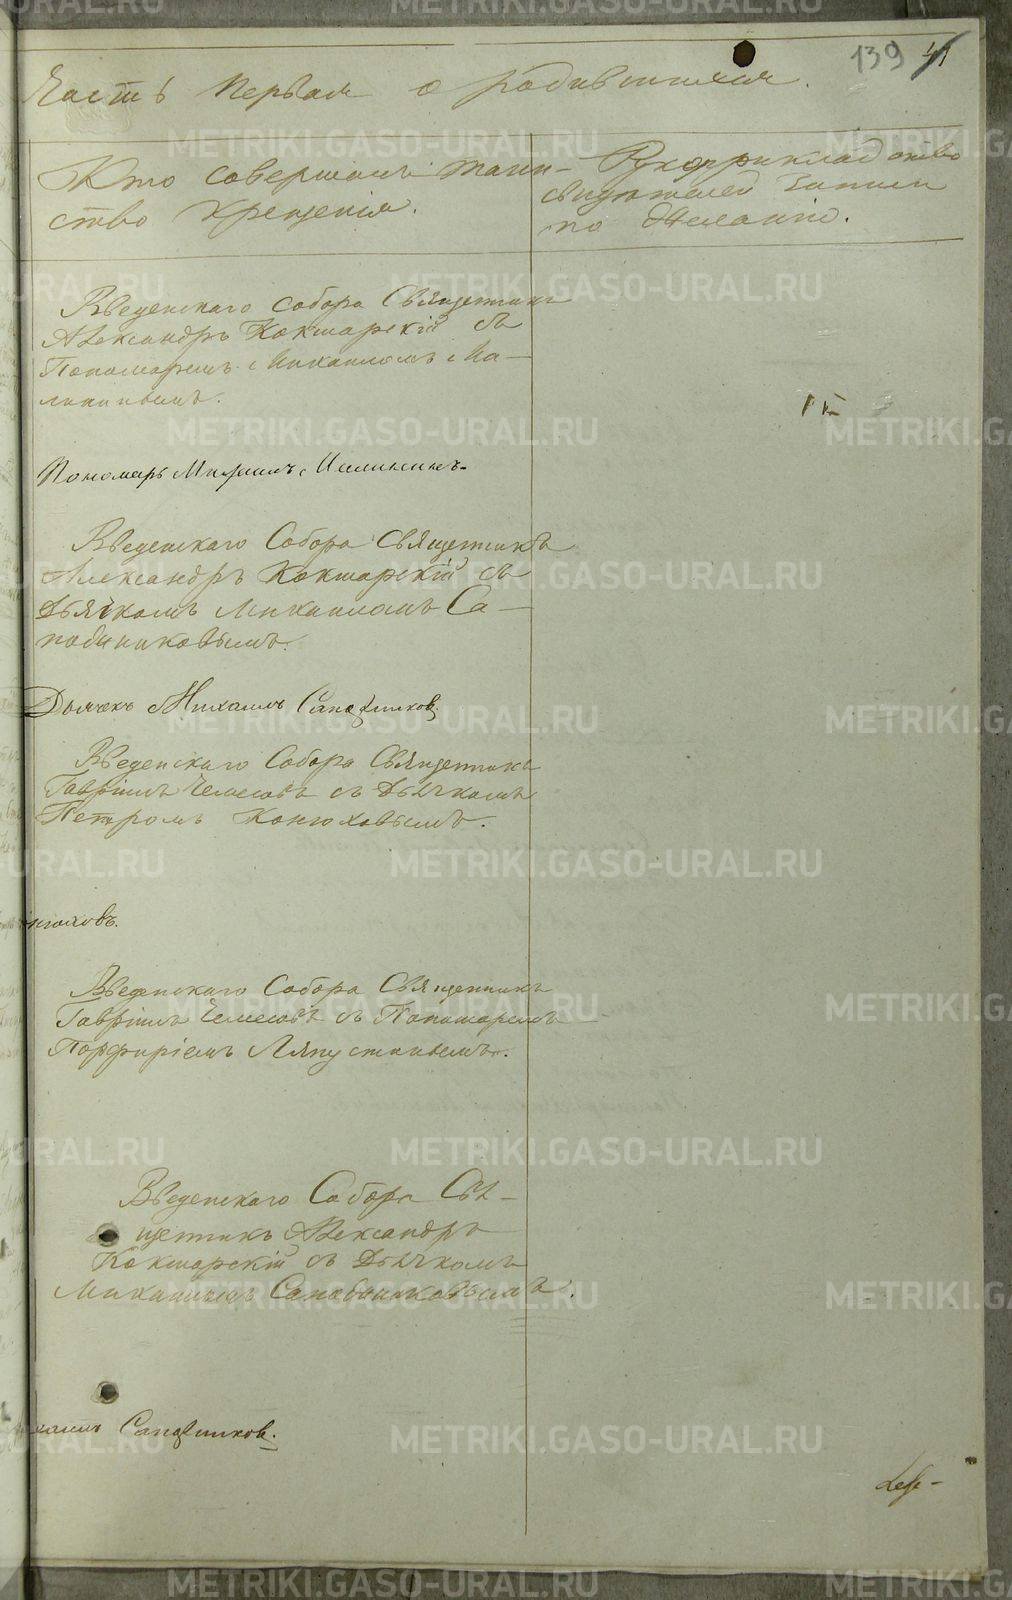 139 41
Часть первая о родившихся.
Кто совершалъ таин-
ство крещенія.
Рукоприкладство
свидѣтелей записи
по желанію.
Введенскаго собора Священникъ
Александръ Кокшарскій съ
Пономаремъ Михаиломъ Ма-
Пономарь Михаилъ
Введенскаго Собора Священникъ
Александръ Кокшарскій съ
Дьячкомъ Михаиломъ Са-
пожниковымъ.
Дьячекъ Михаилъ Сапожников
Введенскаго Собора Священникъ
Гавріилъ съ Дьячкомъ
Петромъ Конюховымъ.
нюховъ.
Введенскаго Собора Священникъ
Гавріилъ съ Пономаремъ
Порфиріемъ Ляпустинымъ.
Введенскаго Собора Свя-
щенникъ Александръ
Кокшарскій съ Дьячкомъ
Михаиломъ Сапожниковымъ.
Сапожников.
METRIKI.GASO-URAL.RU